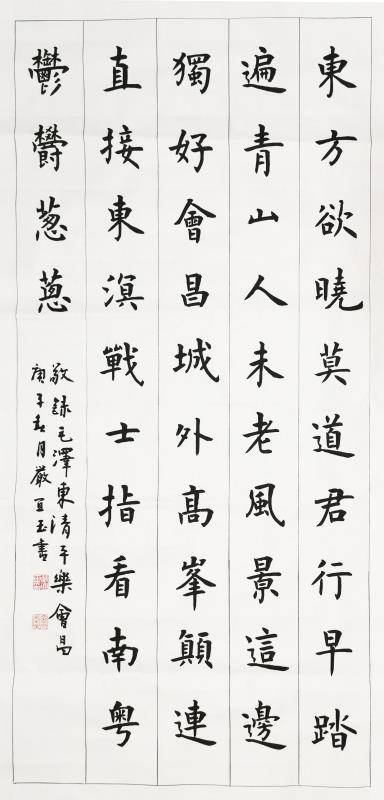 東方欲曉莫道君行早踏
遍青山人未老風景這邊
獨好會昌城外髙峯顛連
直接東溟戰士指看南粤
鬱欝葱蔥
敬錄毛澤東清平樂會昌
庚子春月嚴玉書